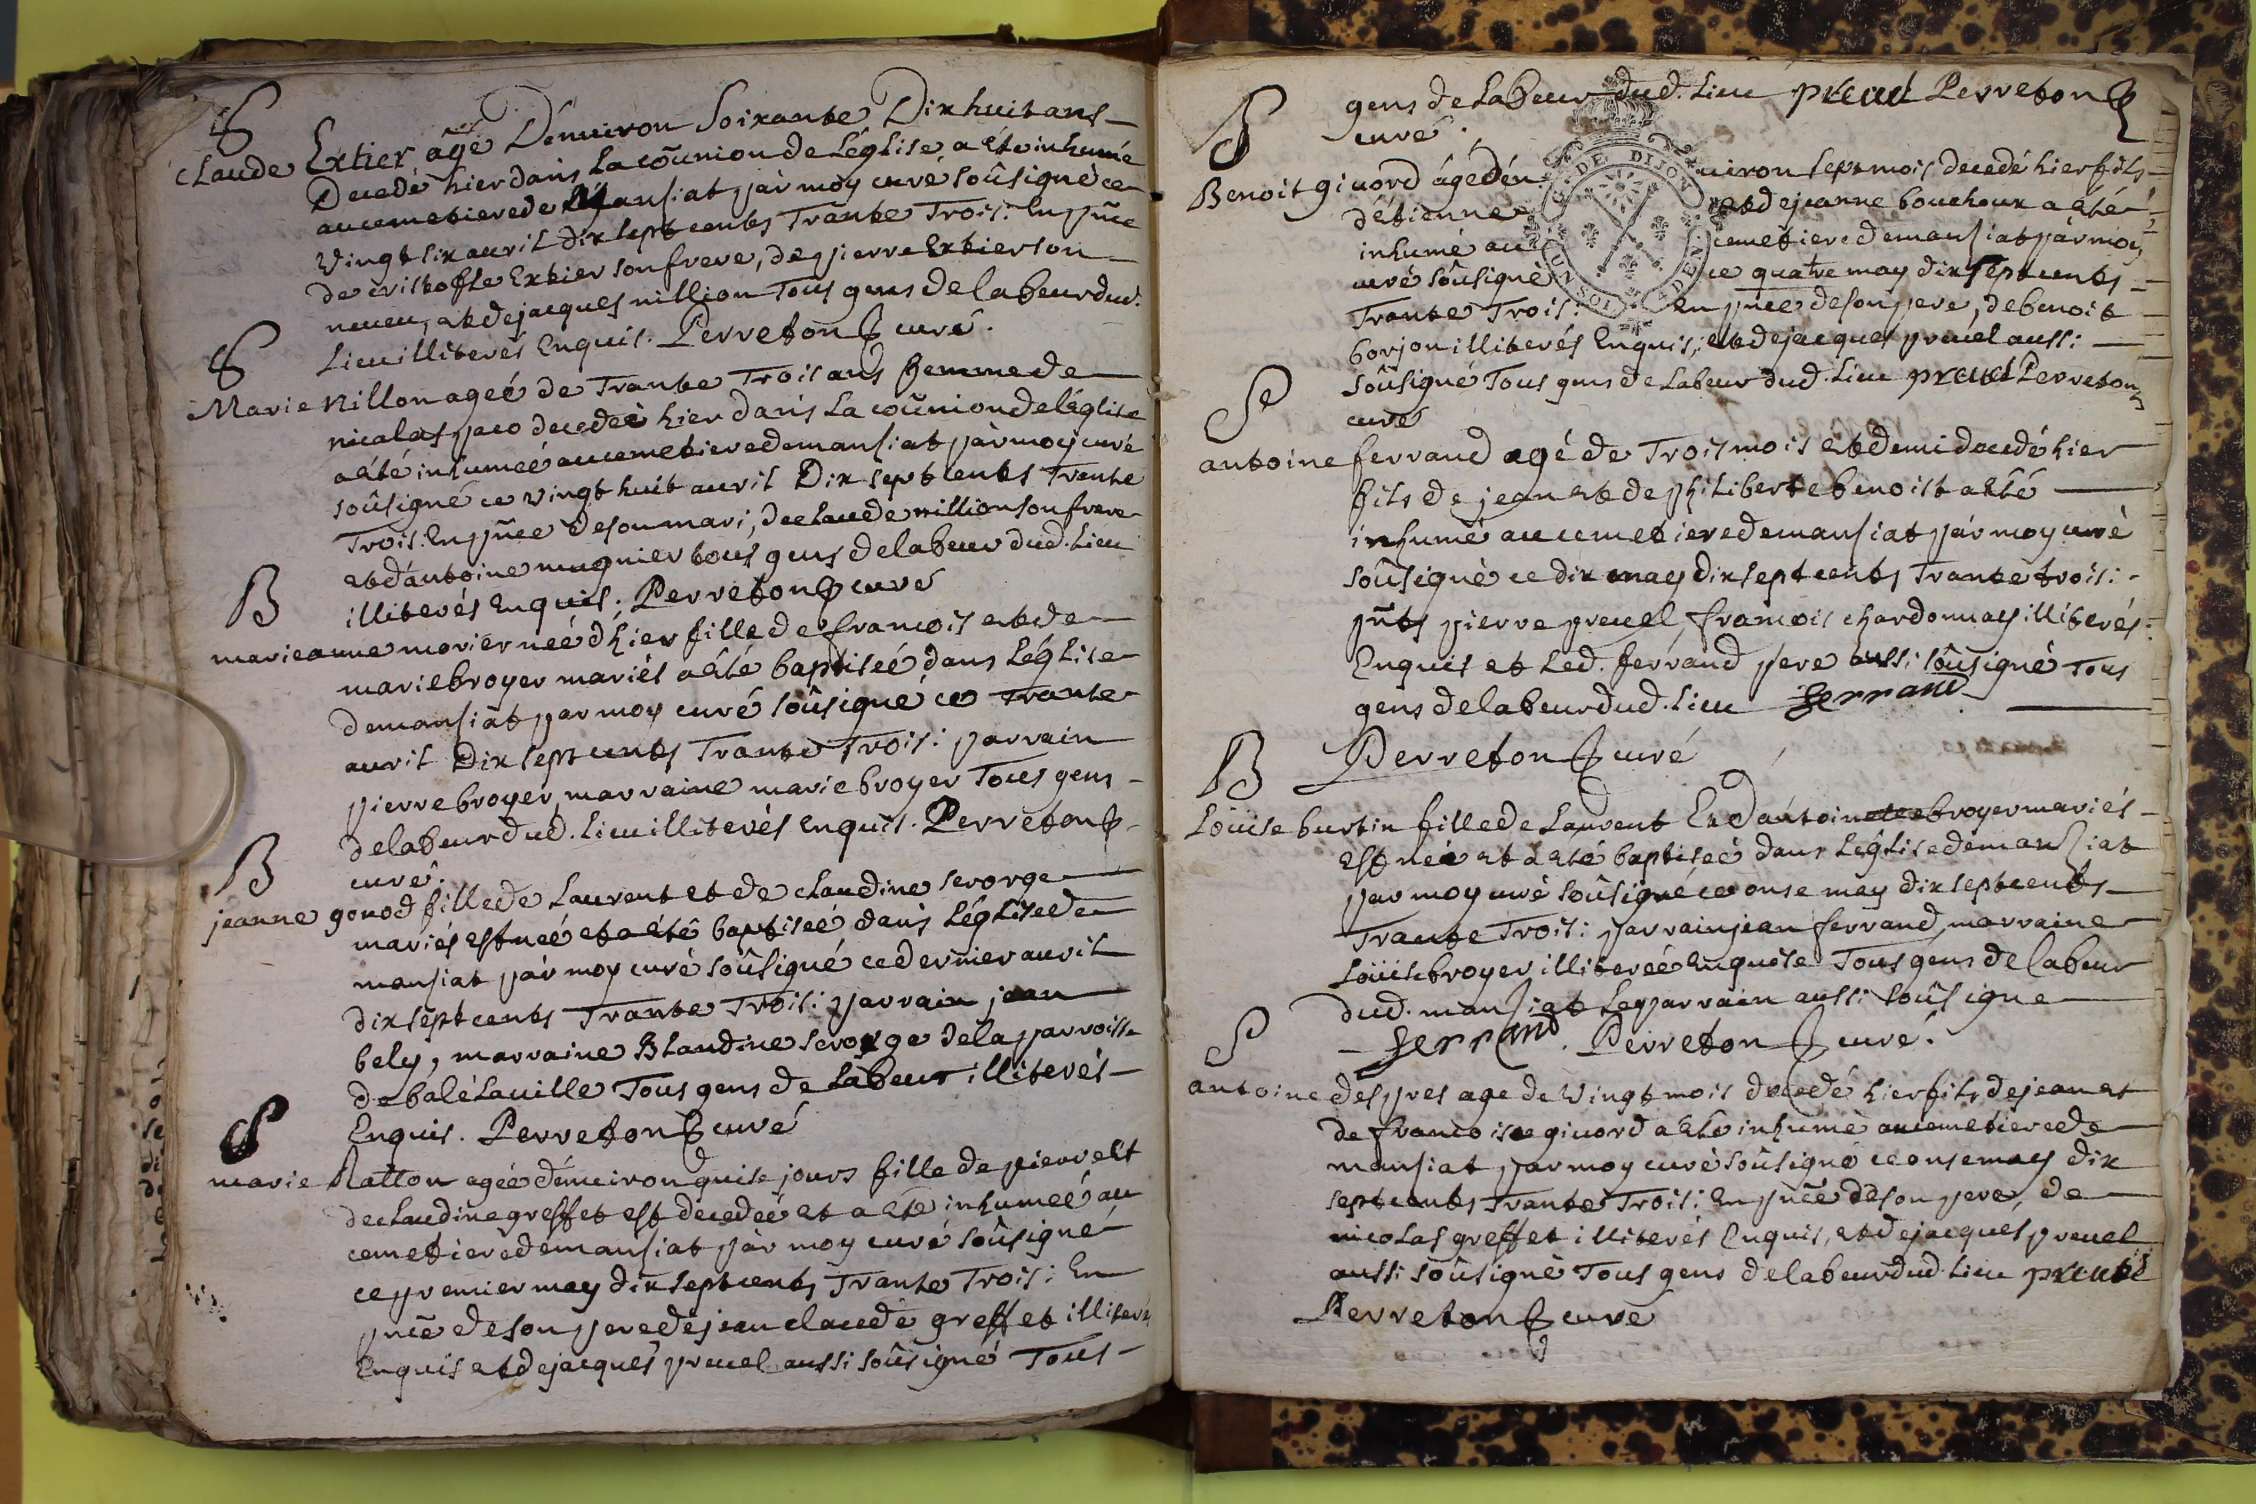 S
Claude Extier âgé D'énuiron Soixante Dixhuit ans
Decedé hier dans La coûnion de L'église a été inhumé
au cemetiere de Mansiat par moy curé soûsigné ce
vingt six auril dix sept cents Trante Trois: En pñce
de cristofle Extier son frere, de pierre Extier son
neueu, et de jacques nillion Tous gens de labeur dud.
Lieu illiterés Enquis. Perreton curé.
S
Marie nillon ageé de Trante Trois ans femme de
nicolas paco decedeé hier dans La coûnion de l'église
a été inhumeé au cemetiere de mansiat par moy curé
soûsigné ce vingt huit auril Dix sept cents Trente
Trois: En pñce de son mari, de claude nillion son frere
et d'antoine mugnier tous gens de labeur dud. Lieu
illiterés Enquis. Perreton curé
B
marieanne morier neé d'hier fille de francois et de
marie broyer mariés a été baptiseé dans L'église
de mansiat par moy curé soûsigné ce Trante
auril Dix sept cents Trante Trois: parrain
pierre broyer, marraine marie broyer Tous gens
de labeur dud. Lieu illiterés Enquis. Perreton
curé.
B
jeanne gonod fille de Laurent et de claudine serorge
mariés est neé et a été baptiseé dans L'église de
mansiat par moy curé soûsigné ce dernier auril
dix sept cents Trante Trois: parrain jean
bely, marraine Blandine serorge de la parroisse
de balé La uille Tous gens de Labeur illiterés
Enquis. Perreton curé
S
marie Ratton ageé d'énuiron quise jours fille de pierre et
de claudine greffet est decedeé et a été inhumeé au
cemetiere de mansiat par moy curé soûsigné
ce premier may dix sept cents Trante Trois: En
pñce de son pere de jean claude greffet illiterés
Enquis et de jacques preuel aussi soûsigné Tous
gens de Labeur dud. Lieu Perreton
curé.
S
Benoit giuord âgé d'énuiron sept mois decedé hier fils
d'étienne et de jeanne bouchoux a été
inhumé au cemetiere de mansiat par moy
curé soûsigné ce quatre may dix sept cents
Trante Trois: En pñce de son pere, de benoit
borjon illiterés Enquis, et de jacques preuel aussi
soûsigné Tous gens de Labeur dud. Lieu Perreton
curé
S
antoine ferrand agé de Trois mois et demi decedé hier
fils de jean et de philiberte benoist a été
inhumé au cemetiere de mansiat par moy curé
soûsigné ce dix may dix sept cents Trante trois:
pñts pierre preuel, francois chardonnay illiterés
Enquis et Led. ferrand pere aussi soûsigné Tous
gens de labeur dud. Lieu ferrand
Perreton curé
B
Loüise burtin fille de Laurent Et d'antoinette broyer mariés
est neé et a été baptiseé dans L'église de mansiat
par moy curé soûsigné ce onse may dix sept cents
Trante Trois: parrain jean ferrand, marraine
Loüise broyer illitereé Enquise Tous gens de labeur
dud. mansiat Le parrain aussi soûsigné
ferrand. Perreton curé.
S
antoine despres age de vingt mois decedé hier fils de jean et
de francoise giuord a été inhumé au cemetiere de
mansiat par moy curé soûsigné ce onse may dix
sept cents Trante Trois: En pñce de son pere, de
nicolas greffet illiterés Enquis, et de jacques preuel
aussi soûsigné Tous gens de labeur dud. Lieu
Perreton curé
G. DE DIJON